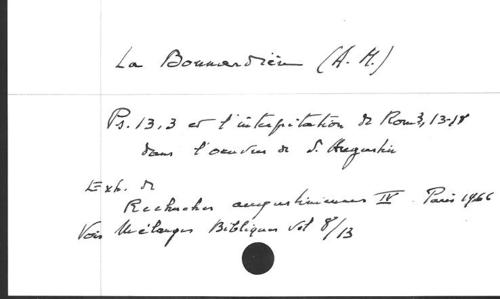 La Bonnardière (A. M.)
Ps. 13,3 et l'interprétation de Rom 3, 13-18
dans l'oeuvre de S. Augustin
Extr. de
Recherches augustiniennes IV Paris 1966
Voir Mélanges Bibliques Vol 8/13